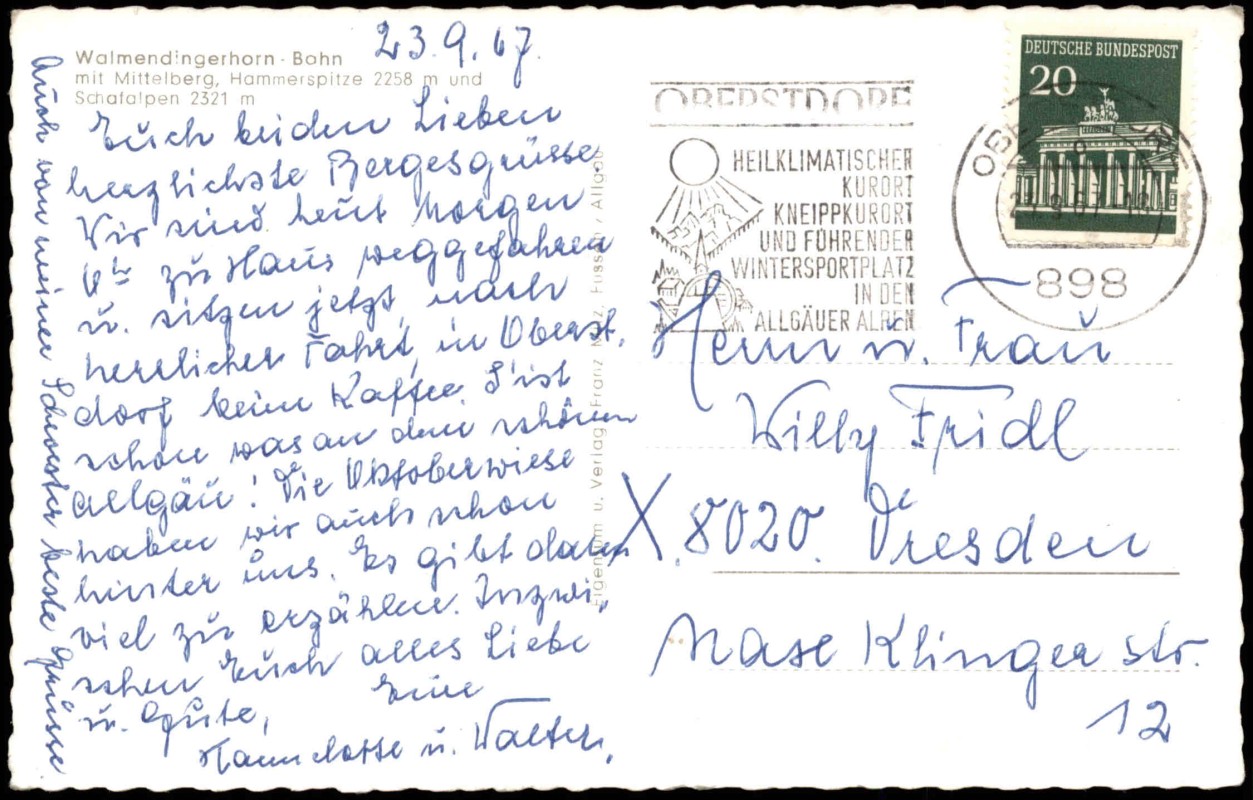 Walmendingerhorn - Bahn
mit Mittelberg, Hammerspitze 2258 m und
Schafalpen 2321 m
23.9.67.
Euch beiden Lieben
herzlichste Bergesgrüsse
Wir sind heut Morgen
6h zu Haus weggefahren
u. sitzen jetzt, nach
herrlicher Fahrt, in Oberst,
dorf beim Kaffee. S'ist
schon was an dem schönen
Allgäu! Die Oktoberwiese
haben wir auch schon
hinter uns. Es gibt dann
viel zu erzählen. Inzwi,
schen Euch alles Liebe
u. Gute,
Eure
Hannelotte u. Walter,
Auch von meiner Schwester beste Grüsse
Eigentum u. Verlag Franz Füssen, Allgäu
OBERSTDORF
HEILKLIMATISCHER
KURORT
KNEIPPKURORT
UND FÜHRENDER
WINTERSPORTPLATZ
IN DEN
ALLGÄUER ALPEN
DEUTSCHE BUNDESPOST
20
898
Herrn u. Frau
Willy Fridl
X.8020. Dresden
Klinger str.
12